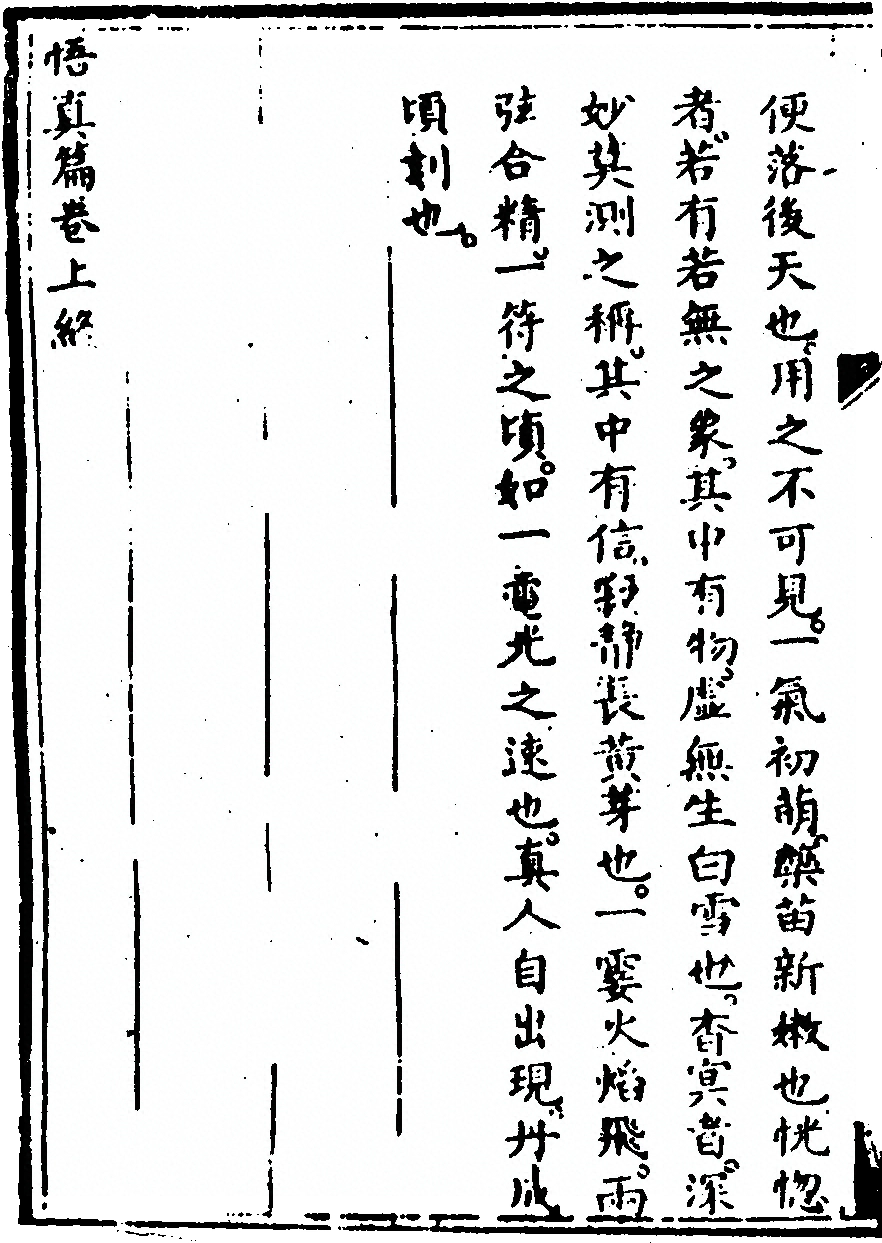 便落後天也用之不可見一氣初萌藥苗新嫩也恍惚
者若有若無之象其中有物虛無生白雪也杳冥者深
妙莫測之稱其中有信寂靜長黃芽也一霎火焰飛兩
弦合精一符之頃如一電光之速也真人自出現丹成
頃刻也
悟真篇卷上終